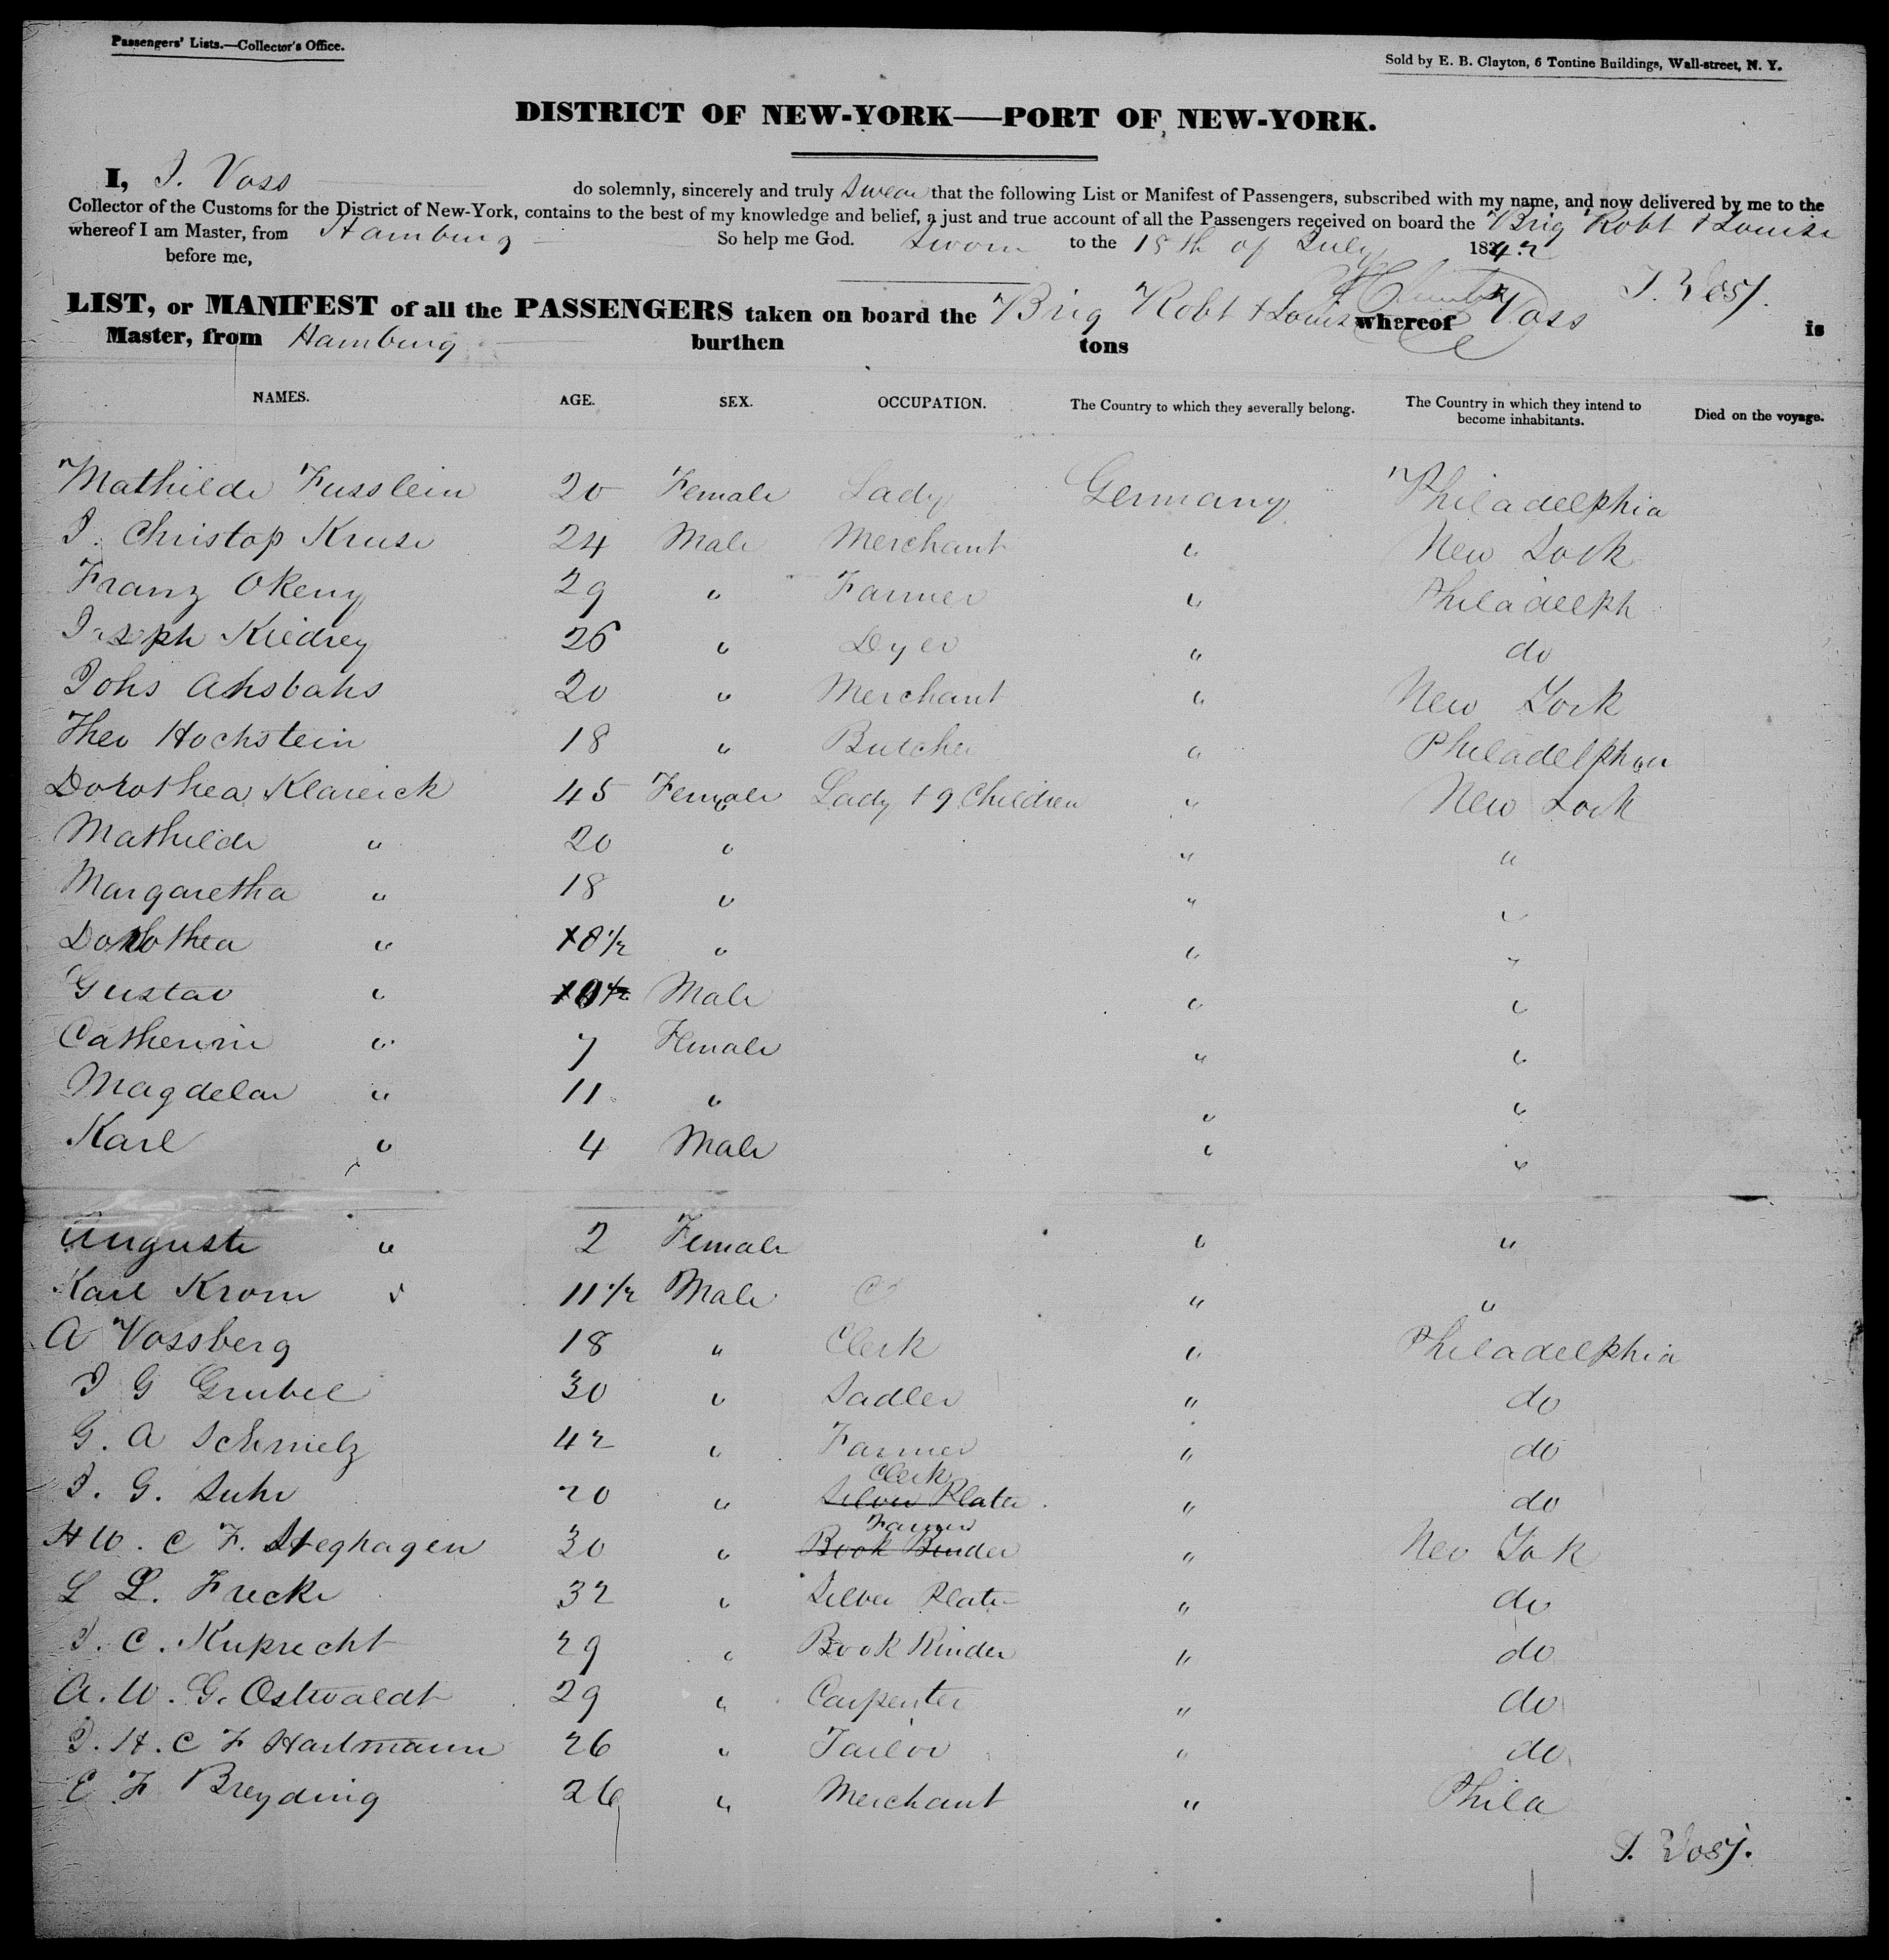 Passengers' Lists.—Collector's Office.
Sold by E. B. Clayton, 6 Tontine Buildings, Wall-street, N. Y.
DISTRICT OF NEW-YORK—PORT OF NEW-YORK.
I, J. Voss do solemnly, sincerely and truly Swear that the following List or Manifest of Passengers, subscribed with my name, and now delivered by me to the
Collector of the Customs for the District of New-York, contains to the best of my knowledge and belief, a just and true account of all the Passengers received on board the Brig Robt & Louise
whereof I am Master, from Hamburg So help me God. Sworn to the 18th of July 1842
before me,
J. Voss.
LIST, or MANIFEST of all the PASSENGERS taken on board the Brig Robt & Louise whereof Voss is
Master, from Hamburg burthen tons
NAMES. AGE. SEX. OCCUPATION. The Country to which they severally belong. The Country in which they intend to become inhabitants. Died on the voyage.
Mathilde Fusslein 20 Female Lady Germany Philadelphia
J. Christop Kruse 24 Male Merchant " New York
Franz Okeny 29 " Farmer " Philadelph
Joseph Kiedrey 26 " Dyer " do
Johs Ahsbahs 20 " Merchant " New York
Theo Hochstein 18 " Butcher " Philadelphia
Dorothea Klareick 45 Female Lady & 9 Children " New York
Mathilde " 20 " " "
Margaretha " 18 " " "
Dorothea " 8½ " " "
Gustav " Male " "
Catherine " 7 Female " "
Magdelan " 11 " " "
Karl " 4 Male " "
Auguste " 2 Female " "
Karl Krom " 11½ Male " "
A Vossberg 18 " Clerk " Philadelphia
J G Grubel 30 " Sadler " do
G. A Schmelz 42 " Farmer " do
Clerk
J. G. Suhr 20 " Silver Plater " do
Farmer
H W. C F. Steghagen 30 " Book Binder " New York
L L. Fricke 32 " Silver Plater " do
J. C. Kuprecht 29 " Book Binder " do
A. W. G. Ostwaldt 29 " Carpenter " do
J. H. C F Hartmann 26 " Tailor " do
E F Breyding 26 " Merchant " Phila
J. Voss.